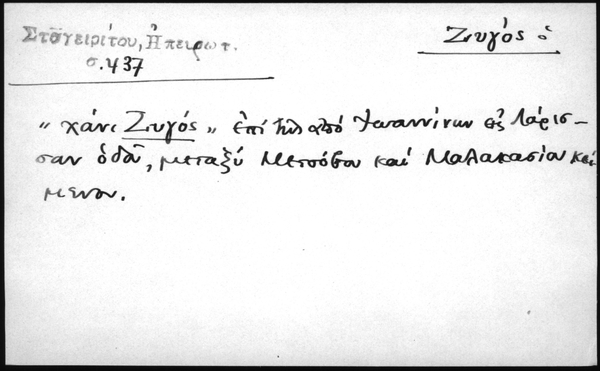 Σταγειρίτου, Ἠπειρωτ.
σ. 437
Ζυγός ὁ
"χάνι Ζυγός" ἐπί τῆς ἀπό Ἰωαννίνων εἰς Λάρισ-
σαν ὁδοῦ, μεταξύ Μετσόβου καί Μαλακασίου κεί
μενον.